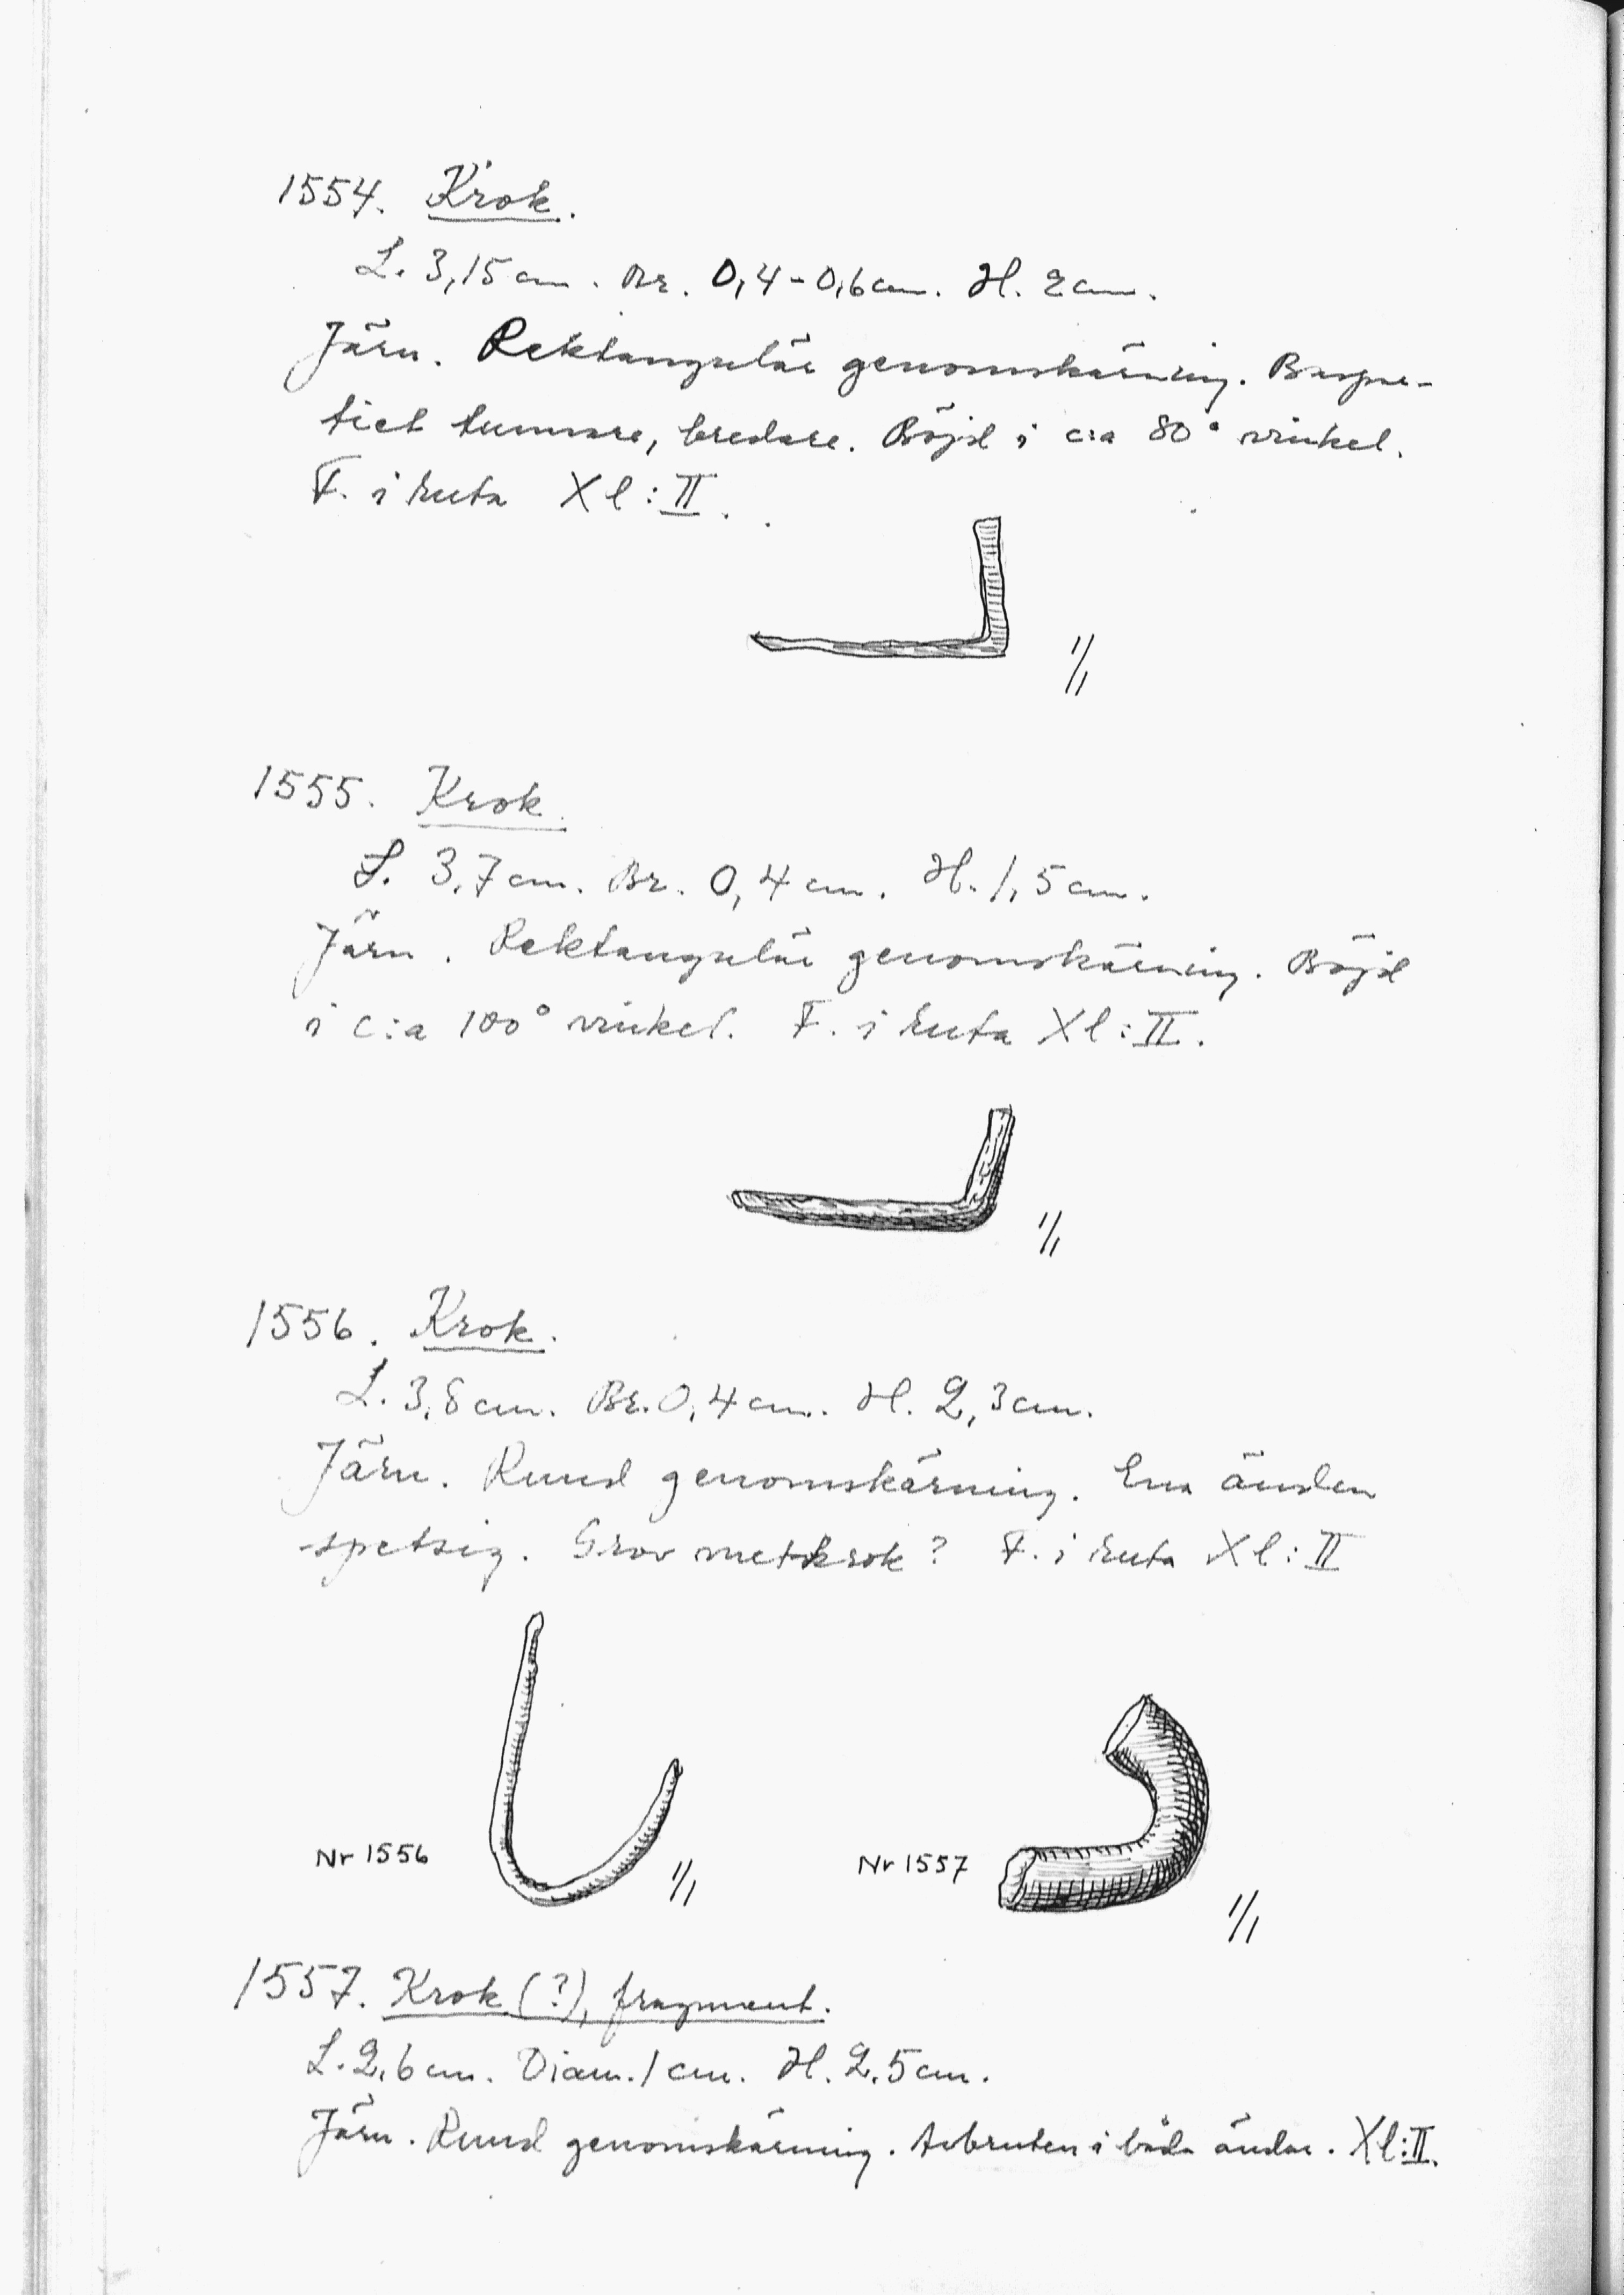 1554. Krok.
L. 3,15 cm. Br. 0,4-0,6 cm. H. 2 cm.
Järn. Rektangulär genomskärning.
tiet tunnare, bredare. Böjd i c:a 80° vinkel.
F. i ruta Xl:II.
1/1
1555. Krok.
L. 3,7 cm. Br. 0,4 cm. H. 1,5 cm.
Järn. Rektangulär genomskärning. Böjd
i c:a 100° vinkel. F. i ruta Xl:II.
1/1
1556. Krok.
L. 3,8 cm. Br. 0,4 cm. H. 2,3 cm.
Järn. Rund genomskärning. Ena änden
spetsig. Grov metkrok? F. i ruta Xl:II
Nr 1556
1/1
Nr 1557
1/1
1557. Krok (?), fragment.
L. 2,6 cm. Diam. 1 cm. H. 2,5 cm.
Järn. Rund genomskärning. Avbruten i båda ändar. Xl:II.